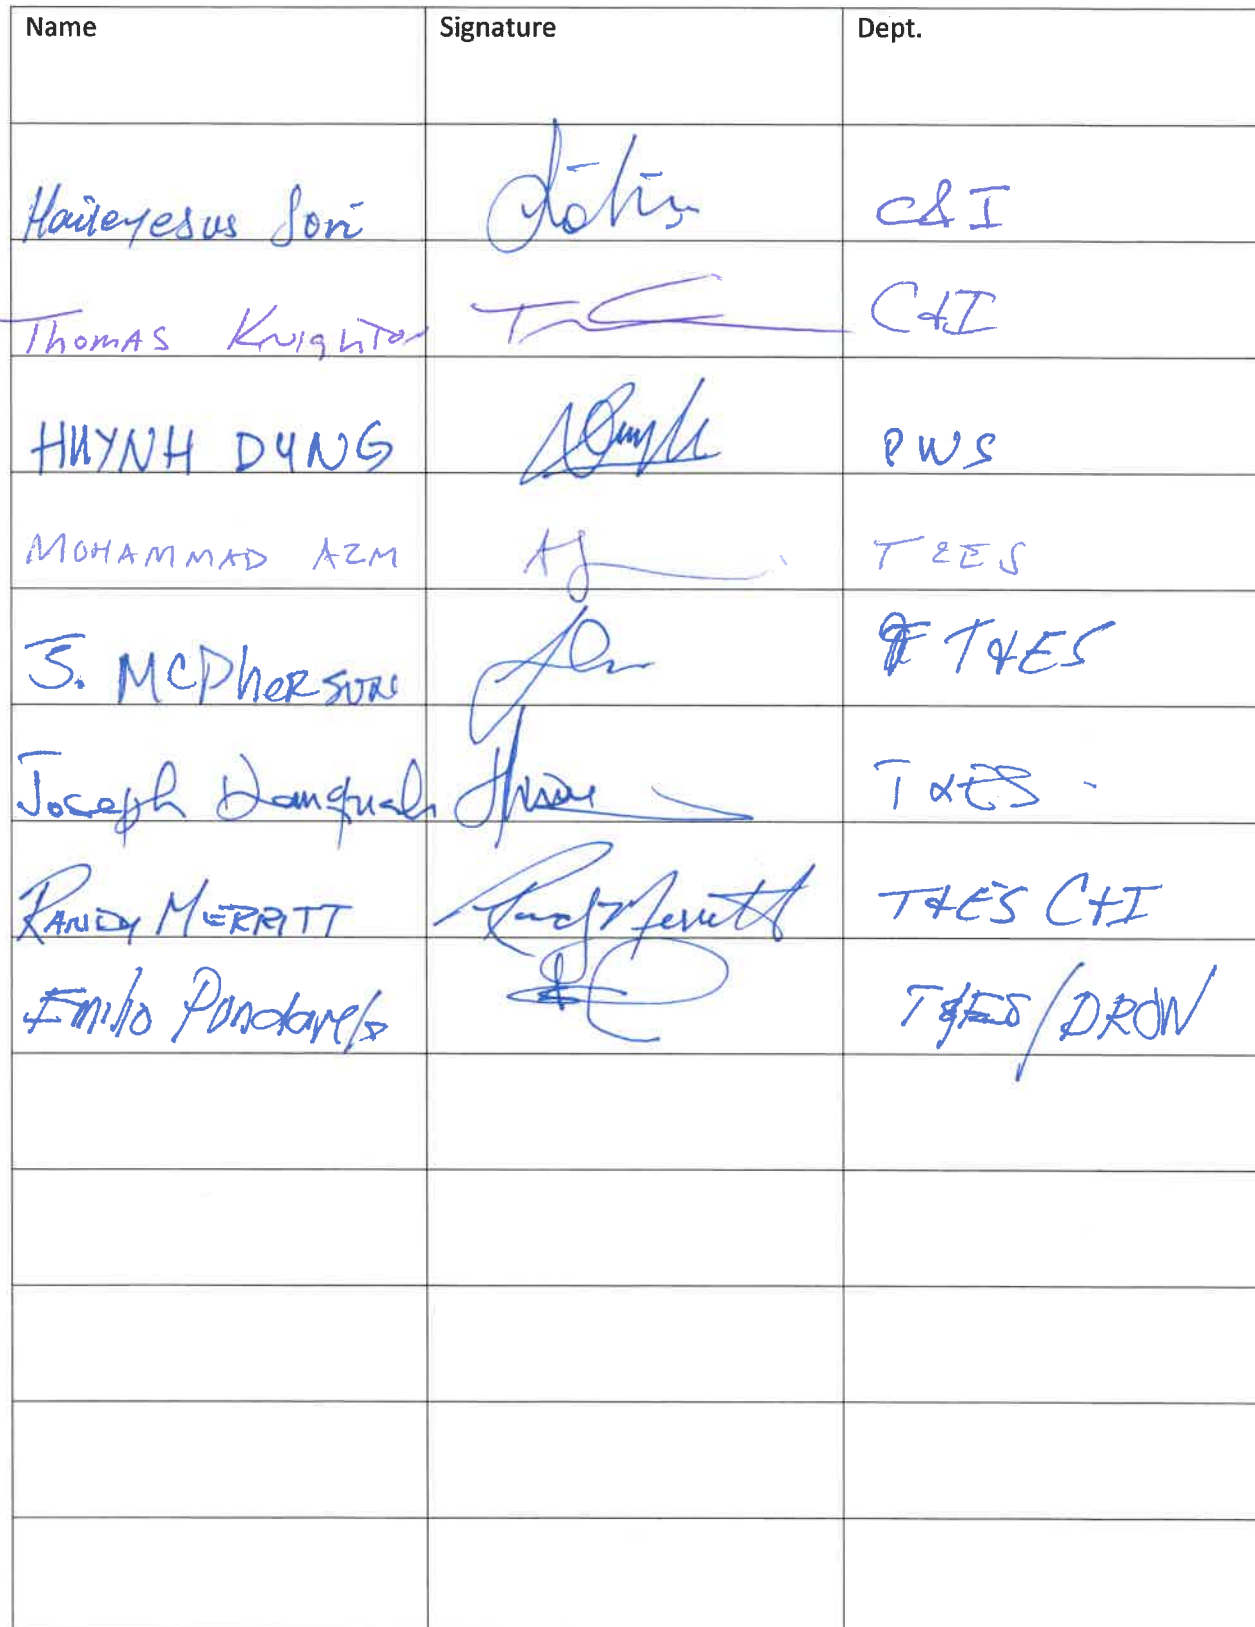 Name Signature Dept.
Haileyesus Sori C&I
Thomas Knighton C&I
HUYNH DUNG PWS
MOHAMMAD AZM T&ES
J. McPherson T&ES
Joseph Danquah T&ES
RANDY MERRITT Randy Merritt T&ES C&I
Emilio T&ES/DROW